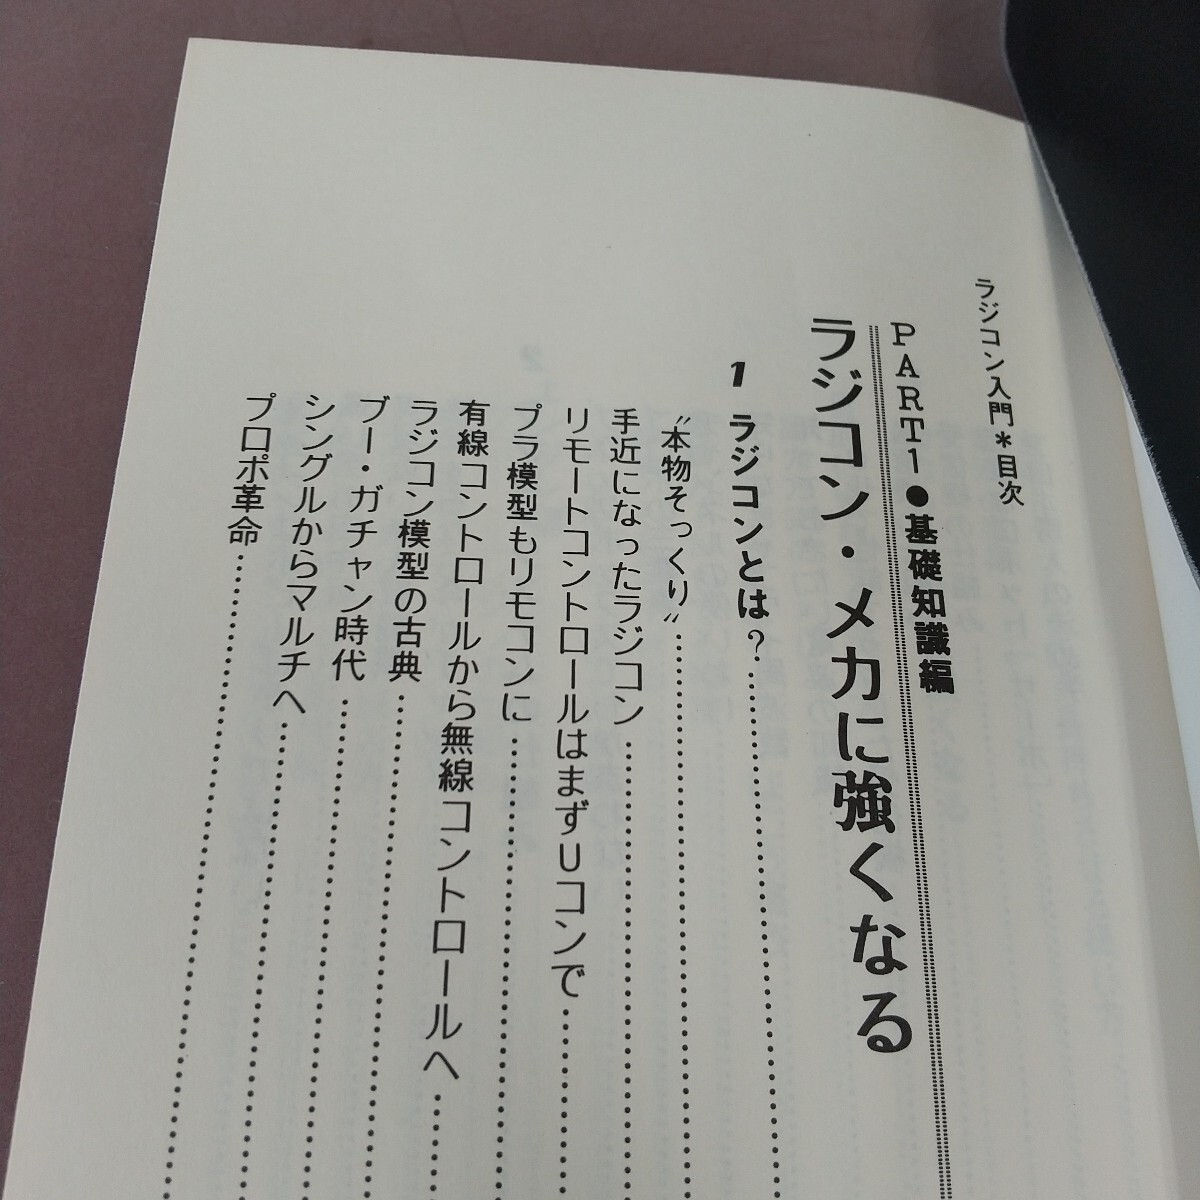 ラジコン入門＊目次
PART1●基礎知識編
ラジコン・メカに強くなる
1 ラジコンとは？…………
〝本物そっくり〟…………
手近になったラジコン…………
リモートコントロールはまずUコンで…………
プラ模型もリモコンに…………
有線コントロールから無線コントロールへ…………
ラジコン模型の古典…………
ブー・ガチャン時代…………
シングルからマルチへ…………
プロポ革命…………